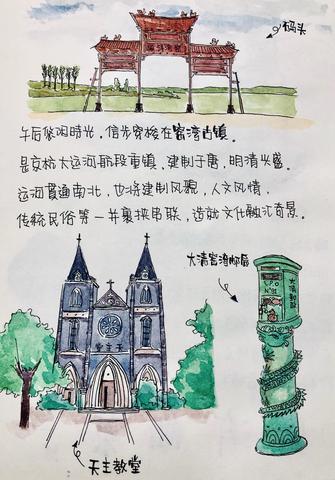 码头
午后悠闲时光，信步穿梭在窑湾古镇。
是京杭大运河航段重镇，建制于唐，明清兴盛。
运河贯通南北，也将建制风貌，人文风情，
传统民俗等一并裹挟串联，造就文化融汇奇景。
大清窑湾邮局
天主堂
天主教堂